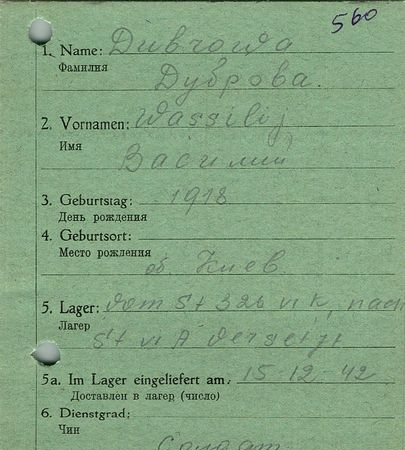 560
1. Name: Dubrowa
Фамилия
Дуброва.
2. Vornamen: Wassilij
Имя
Василий
3. Geburtstag: 1918
День рождения
4. Geburtsort:
Место рождения
об. Киев
5. Lager: vom St 326 VI K, nach
Лагер
St VI A versetzt
5a. Im Lager eingeliefert am: 15-12-42
Доставлен в лагер (число)
6. Dienstgrad:
Чин
Солдат